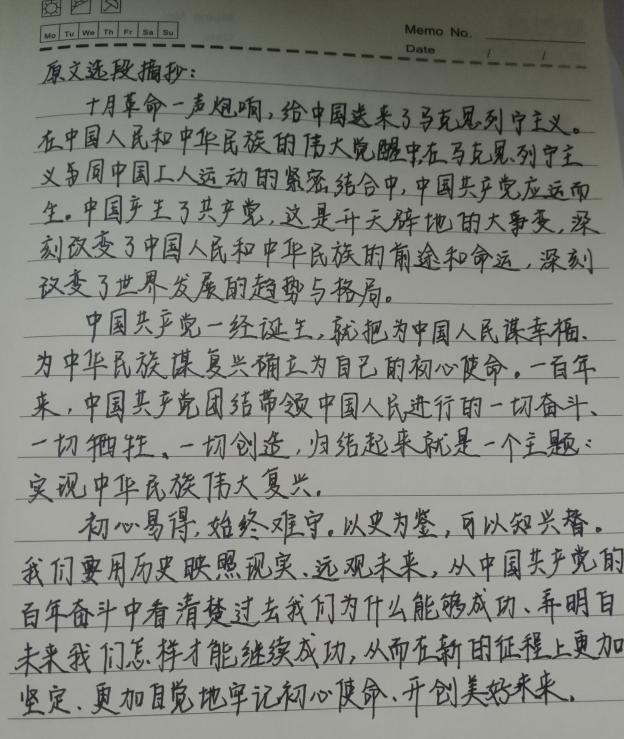 Mo Tu We Th Fr Sa Su
Memo No.
Date / /
原文选段摘抄：
十月革命一声炮响，给中国送来了马克思列宁主义。
在中国人民和中华民族的伟大觉醒中，在马克思列宁主
义与同中国工人运动的紧密结合中，中国共产党应运而
生。中国产生了共产党，这是开天辟地的大事变，深
刻改变了中国人民和中华民族的前途和命运，深刻
改变了世界发展的趋势与格局。
中国共产党一经诞生，就把为中国人民谋幸福、
为中华民族谋复兴确立为自己的初心使命。一百年
来，中国共产党团结带领中国人民进行的一切奋斗、
一切牺牲、一切创造，归结起来就是一个主题：
实现中华民族伟大复兴。
初心易得，始终难守。以史为鉴，可以知兴替。
我们要用历史映照现实、远观未来，从中国共产党的
百年奋斗中看清楚过去我们为什么能够成功、弄明白
未来我们怎样才能继续成功，从而在新的征程上更加
坚定、更加自觉地牢记初心使命、开创美好未来。